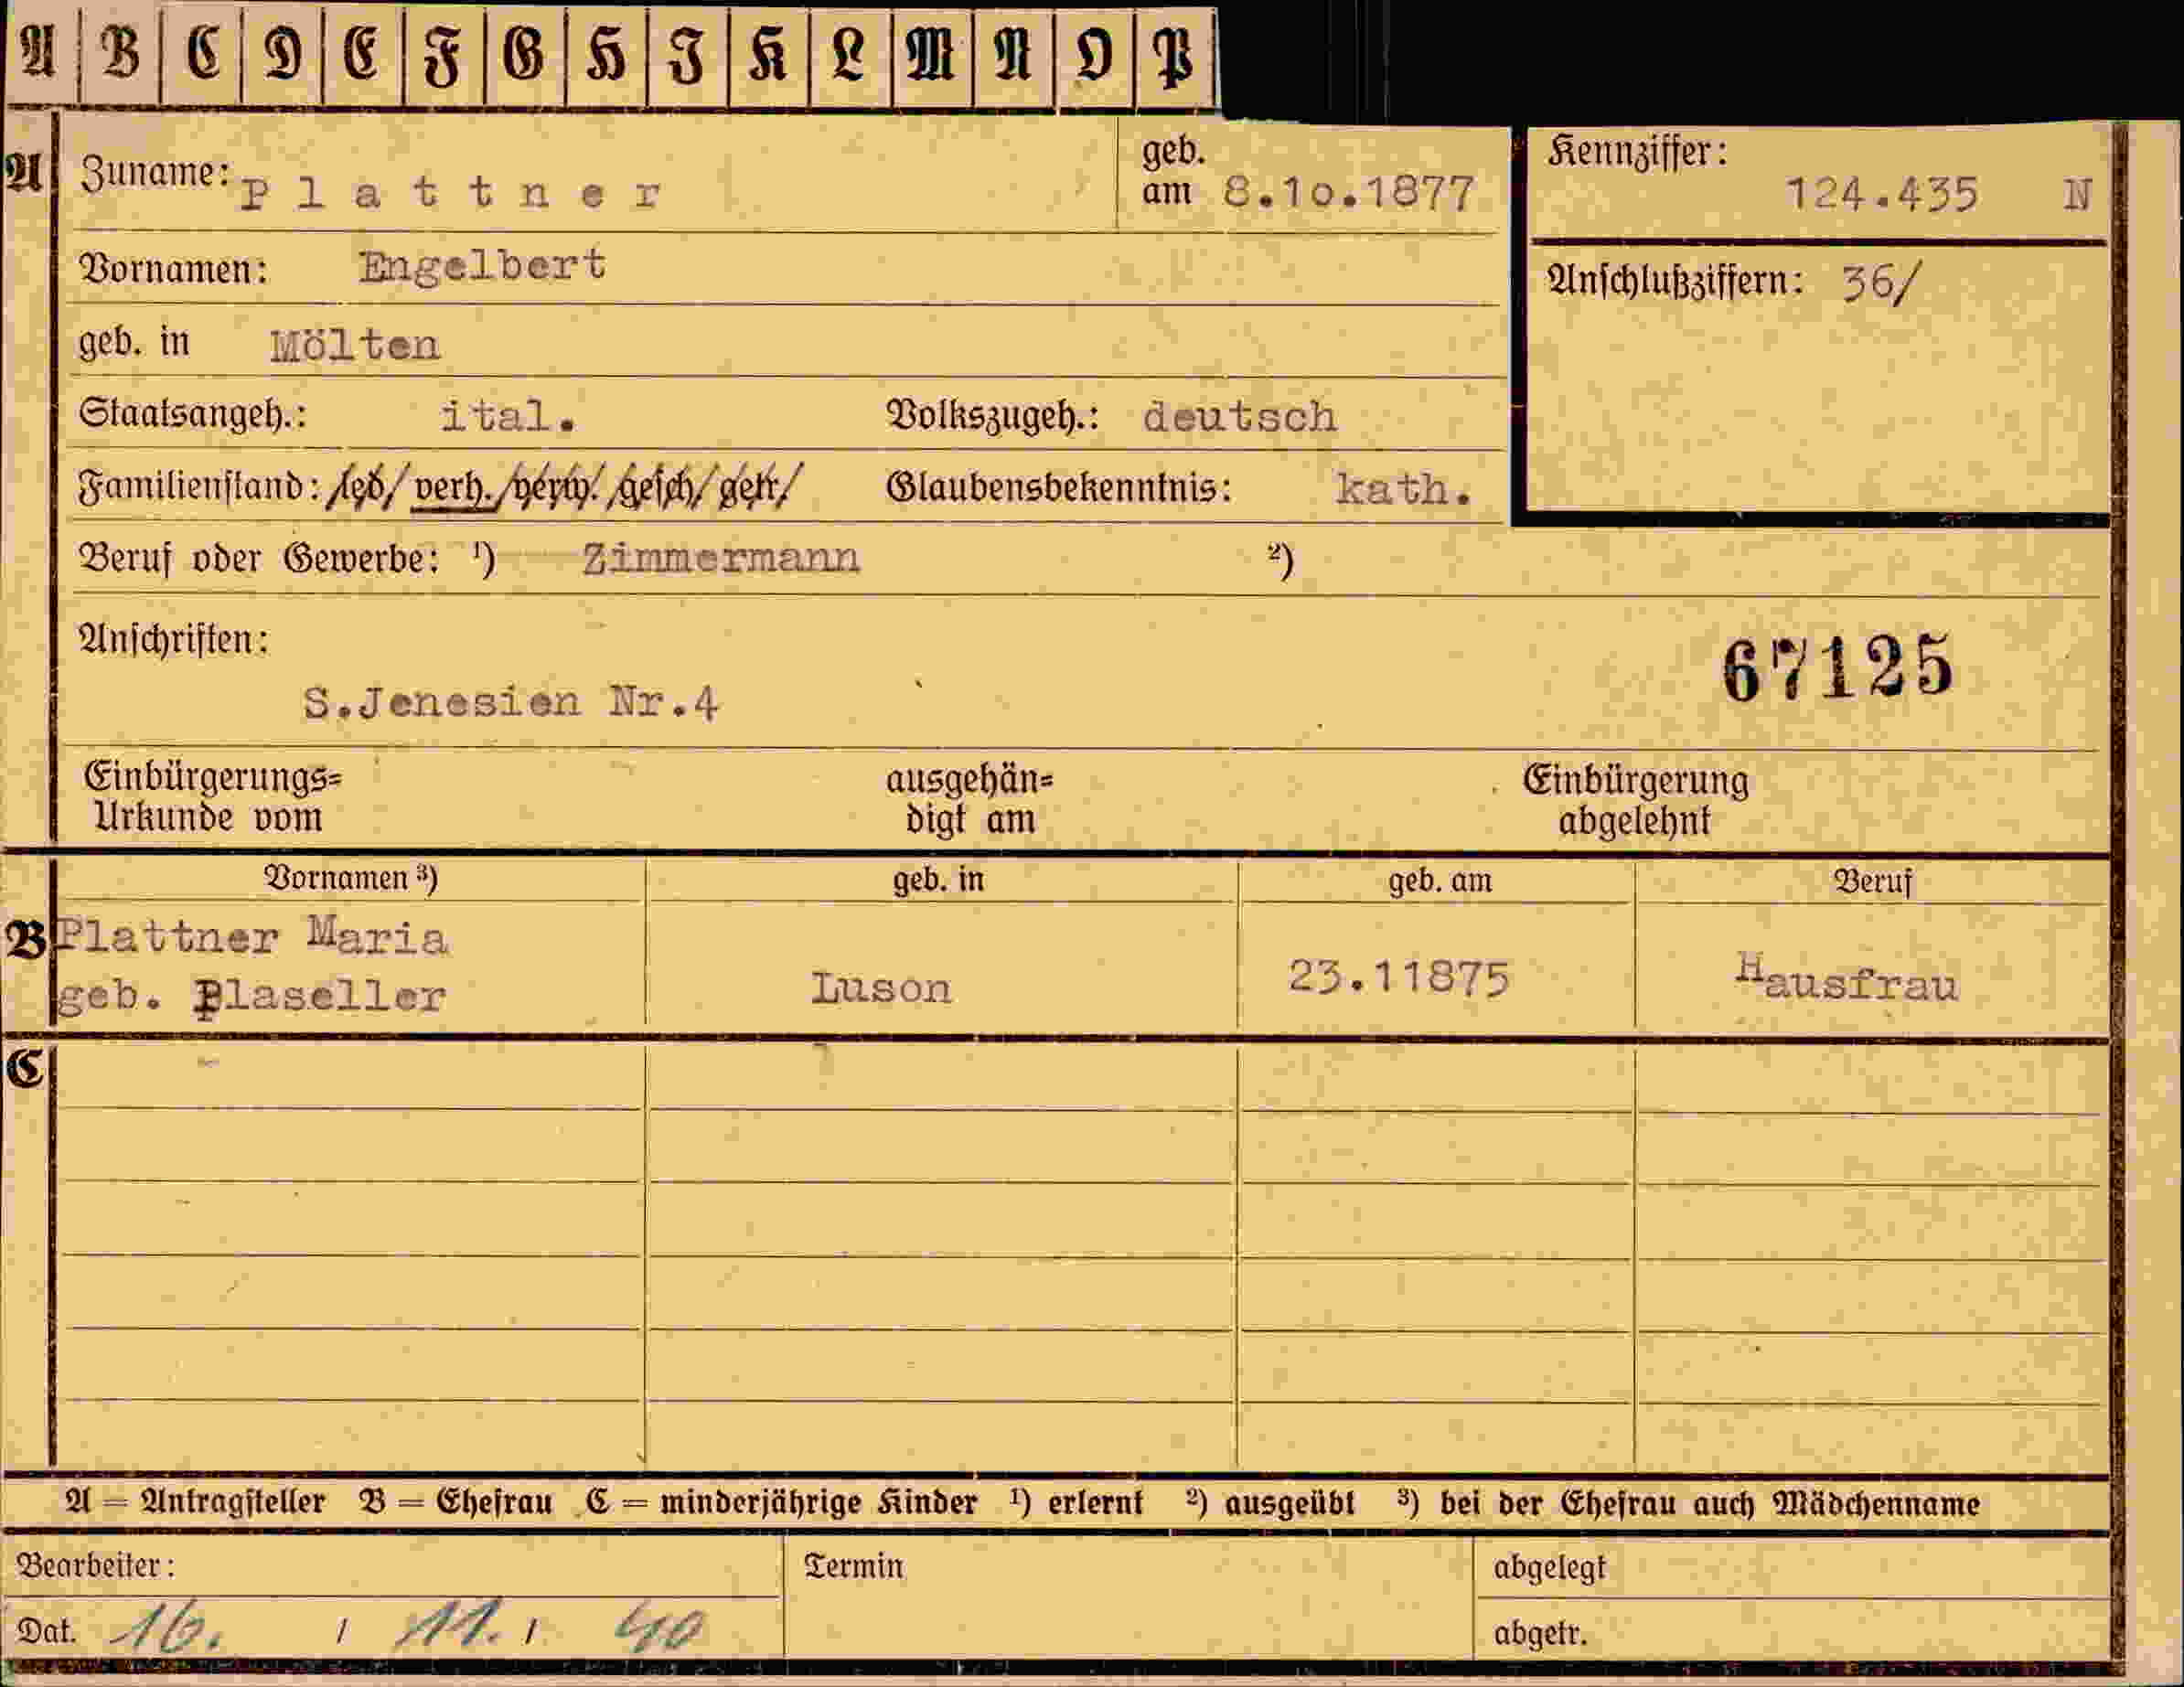 A B C D E F G H I K L M N O P
A Zuname: Plattner geb. am 8.1o.1877 Kennziffer: 124.435 N
Vornamen: Engelbert Anschlußziffern: 36/
geb. in Mölten
Staatsangeh.: ital. Volkszugeh.: deutsch
Familienstand: led/ verh./ verw./ gesch/ getr/ Glaubensbekenntnis: kath.
Beruf oder Gewerbe: ¹) Zimmermann ²)
Anschriften: 67125
S.Jenesien Nr.4
Einbürgerungs= ausgehän= Einbürgerung
Urkunde vom digt am abgelehnt
Vornamen ³) geb. in geb. am Beruf
B Plattner Maria
geb. Plaseller Luson 23.11875 Hausfrau
C
A = Antragsteller B = Ehefrau C = minderjährige Kinder ¹) erlernt ²) ausgeübt ³) bei der Ehefrau auch Mädchenname
Bearbeiter: Termin abgelegt
Dat. 16. / 11. / 40 abgetr.